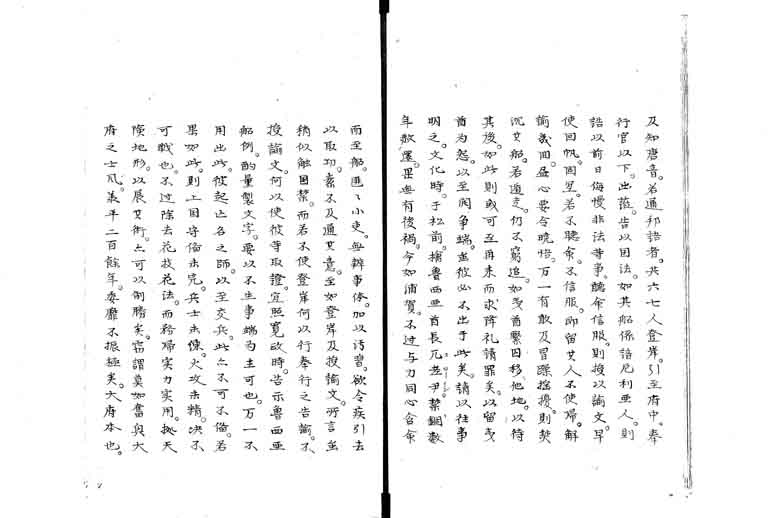 及知唐音。若通和語者。共六七人登岸。引至府中。奉
行官以下。出蒞。告以国法。如其船係諳厄利亜人。則
詰以前日侮慢非法等事。聴命信服。則授以諭文。早
使回帆。固至。若不聴命。不信服。即留其人不使帰。解
諭義回。尽心要令暁悟。万一有敢及冒 擾。則焚
沉其船。若遁走。仍不窮追。如曳酋繋囚移他地。以待
其後。如此則或可至再来而求降礼請罪矣。以留曳
酋為怨。以至開争端。並彼必不出于此矣。請以往事
明之。文化時。于松前。擒魯西亜酋長 。禁錮数
年教還。畢無有後禍。今如浦賀。不过与力同心含命
而至船。区々小吏。無辨事体。加以訪習。欲令疾引去
以取功。素不及通其意。至如登岸及授諭文。所言並
稍似触国禁。而若不使登岸何以行奉行之告諭。不
授諭文。何以使彼等取證。宜照寛政時。告示魯西亜
船例。酌量製文字。要以不生事端為主可也。万一不
用出此。彼起亡名之師。以至交兵。此亦不可不備。若
果如此。則上国守備未完。兵士未倶。火攻未精。決不
可戦也。不过除去花技花法。而務帰実力実用。拠天
険地形。以展其術。亦可以制勝矣。窃謂莫如奮興大
府之士風。蓋平二百余年。委靡不振極矣。大府本也。